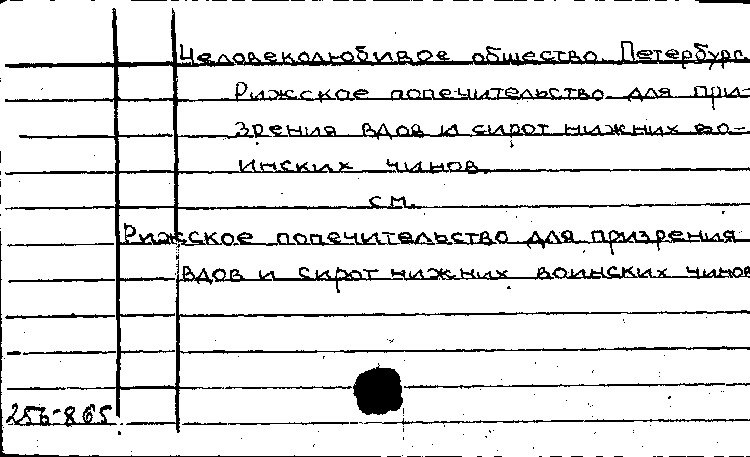 Человеколюбивое общество. Петербург.
Рижское попечительство для при-
зрения вдов и сирот нижних во-
инских чинов.
см.
Рижское попечительство для призрения
вдов и сирот нижних воинских чинов
256-865